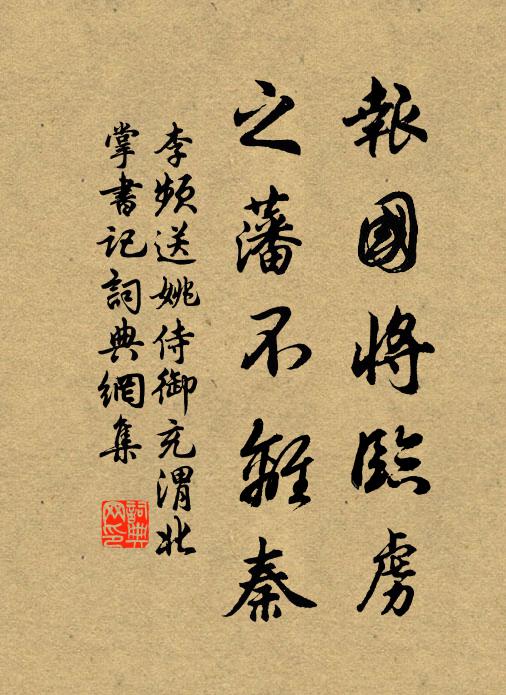 報國將臨虜
之藩不離秦
李頻送姚侍御充渭北
掌書記詞典網集
詞典網印